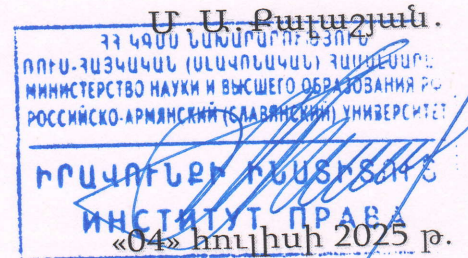 Մ. Ա. Քալաշյան.
ՀՀ ԿԳՄՍ ՆԱԽԱՐԱՐՈՒԹՅՈՒՆ
ՌՈՒՍ-ՀԱՅԿԱԿԱՆ (ՍԼԱՎՈՆԱԿԱՆ) ՀԱՄԱԼՍԱՐ
МИНИСТЕРСТВО НАУКИ И ВЫСШЕГО ОБРАЗОВАНИЯ РФ
РОССИЙСКО-АРМЯНСКИЙ (СЛАВЯНСКИЙ) УНИВЕРСИТЕТ
ԻՐԱՎՈՒՆՔԻ ԻՆՍՏԻՏՈՒՏ
ИНСТИТУТ ПРАВА
«04» հուլիսի 2025 թ.